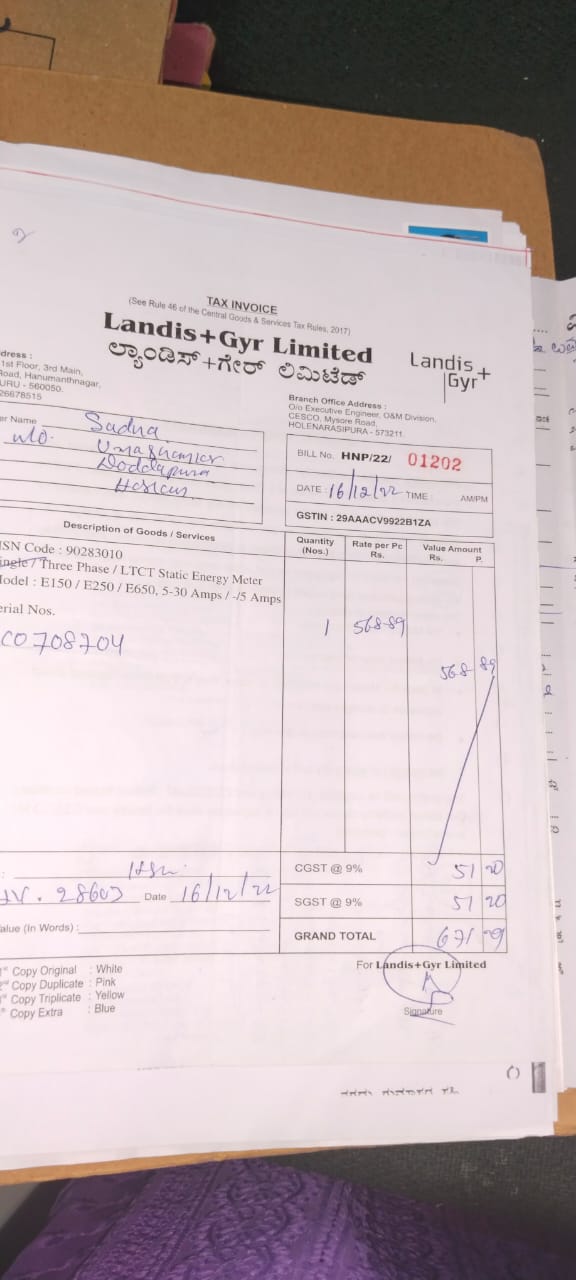 TAX INVOICE
(See Rule 46 of the Central Goods & Services Tax Rules, 2017)
Landis+Gyr Limited
ಲ್ಯಾಂಡಿಸ್+ಗೇರ್ ಲಿಮಿಟೆಡ್
Landis+
Gyr
dress :
1st Floor, 3rd Main,
Road, Hanumanthnagar,
URU - 560050.
26678515
Branch Office Address :
O/o Executive Engineer, O&M Division,
CESCO, Mysore Road,
HOLENARASIPURA - 573211.
er Name
W/o.
Doddapura
BILL No. HNP/22/ 01202
DATE : 16/12/22 TIME AM/PM
GSTIN : 29AAACV9922B1ZA
Description of Goods / Services
Quantity
(Nos.)
Rate per Pc
Rs.
Value Amount
Rs. P.
ISN Code : 90283010
ingle / Three Phase / LTCT Static Energy Meter
odel : E150 / E250 / E650, 5-30 Amps / -/5 Amps
erial Nos.
C0708704
1 568-89
568 89
CGST @ 9% 51 20
Date 16/12/22
SGST @ 9% 51 20
alue (In Words) :
GRAND TOTAL 671 29
1st Copy Original : White
Copy Duplicate : Pink
Copy Triplicate : Yellow
Copy Extra : Blue
For Landis+Gyr Limited
Signature